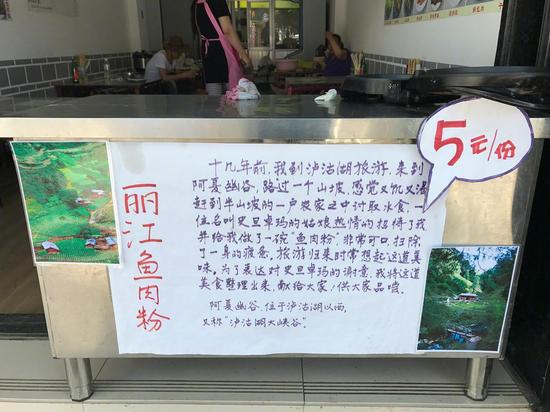 丽江鱼肉粉
十几年前,我到泸沽湖旅游,来到
阿夏幽谷,路过一个山坡,感觉又饥又渴
赶到半山坡的一户农家之中讨取水食,一
位名叫史旦卓玛的姑娘热情的招待了我
并给我做了一碗鱼肉粉,非常可口,扫除
了一身的疲惫,旅游归来时常想起这道美
味,为了表达对史旦卓玛的谢意,我将这道
美食整理出来,献给大家,供大家品嚐。
阿夏幽谷,位于泸沽湖以西,
又称“泸沽湖大峡谷”。
5元/份